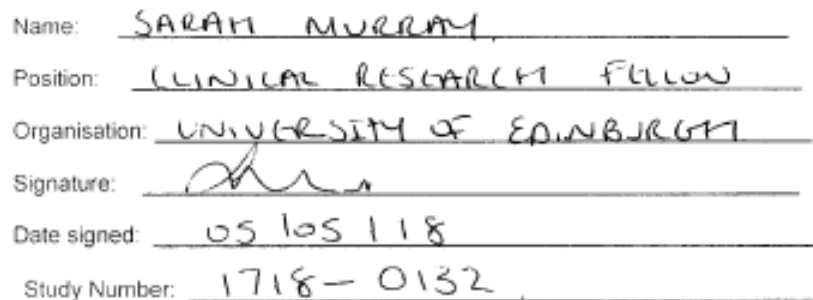 Name: SARAH MURRAY
Position: CLINICAL RESEARCH FELLOW
Organisation: UNIVERSITY OF EDINBURGH
Signature:
Date signed: 05/05/18
Study Number: 1718-0132